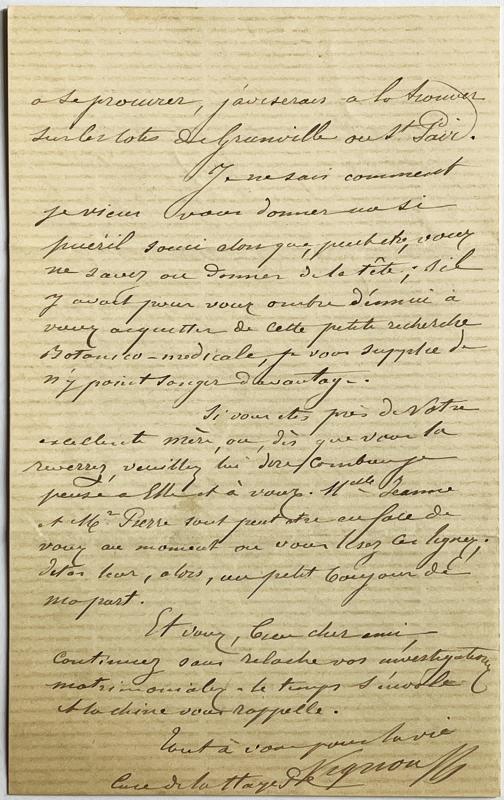 a se procurer, j'aviserais a la trouver
sur les cotes de Granville ou St Pair.
Je ne sais comment
je viens vous donner un si
puéril souci alors que, peut etre, vous
ne savez ou donner de la tête; s'il
y avait pour vous ombre d'ennui à
vous acquitter de cette petite recherche
Botanico-médicale, je vous supplie de
n'y point songer davantage.
Si vous etes près de votre
excellente mère, ou, dès que vous la
reverrez, veuillez lui dire combien je
pense a Elle et à vous. Melle Jeanne
et Mr Pierre sont peut etre en face de
vous au moment ou vous lisez ces lignes;
dites leur, alors, un petit bonjour de
ma part.
Et vous, bien cher ami,
continuez sans relache vos investigations
matrimoniales - le temps s'envole
et la chine vous rappelle.
Tout à vous pour la vie
Vignon
Cure de la Haye